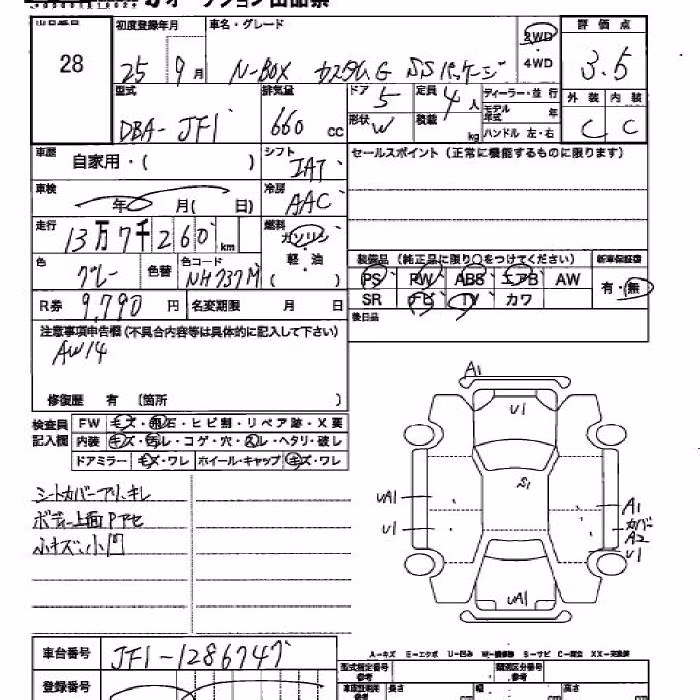 オークション出品票
出品番号 初度登録年月 車名・グレード 2WD 評価点
28 25 9月 N-BOX カスタムG SSパッケージ 4WD 3.5
型式 排気量 ドア 5 定員 4人 ディーラー・並行 外装 内装
DBA-JF1 660 cc 形状 W 積載 kg モデル年式 年 C C
ハンドル 左・右
車歴 自家用・( ) シフト IAT セールスポイント(正常に機能するものに限ります)
車検 年 月( 日) 冷房 AAC
走行 13万7千260km 燃料 ガソリン
軽・油
( )
色 グレー 色替 色コード NH737M
装備品(純正品に限り○をつけてください) 新車保証書
PS PW ABS エアB AW 有・無
SR ナビ TV カワ
R券 9,790円 名変期限 月 日 後日品
注意事項申告欄(不具合内容等は具体的に記入して下さい)
AW14
修復歴 有 (箇所 )
検査員記入欄 FW キズ・飛石・ヒビ割・リペア跡・X要
内装 キズ・汚レ・コゲ・穴・スレ・ヘタリ・破レ
ドアミラー キズ・ワレ ホイール・キャップ キズ・ワレ
シートカバーアリ、キレ
ボディー上面Pアセ
小キズ、小凹
A1
U1
S1
UA1
U1
A1
カバー
A2
U1
UA1
A-キズ E-エクボ U-凹み W-補修跡 S-サビ C-腐食 XX-交換跡
車台番号 JF1-1286747
型式指定番号 参考 類別区分番号 参考
登録番号
長さ cm 幅 cm 高さ cm